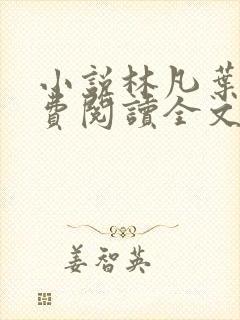 小說林凡葉
費閱讀全文
姜智英